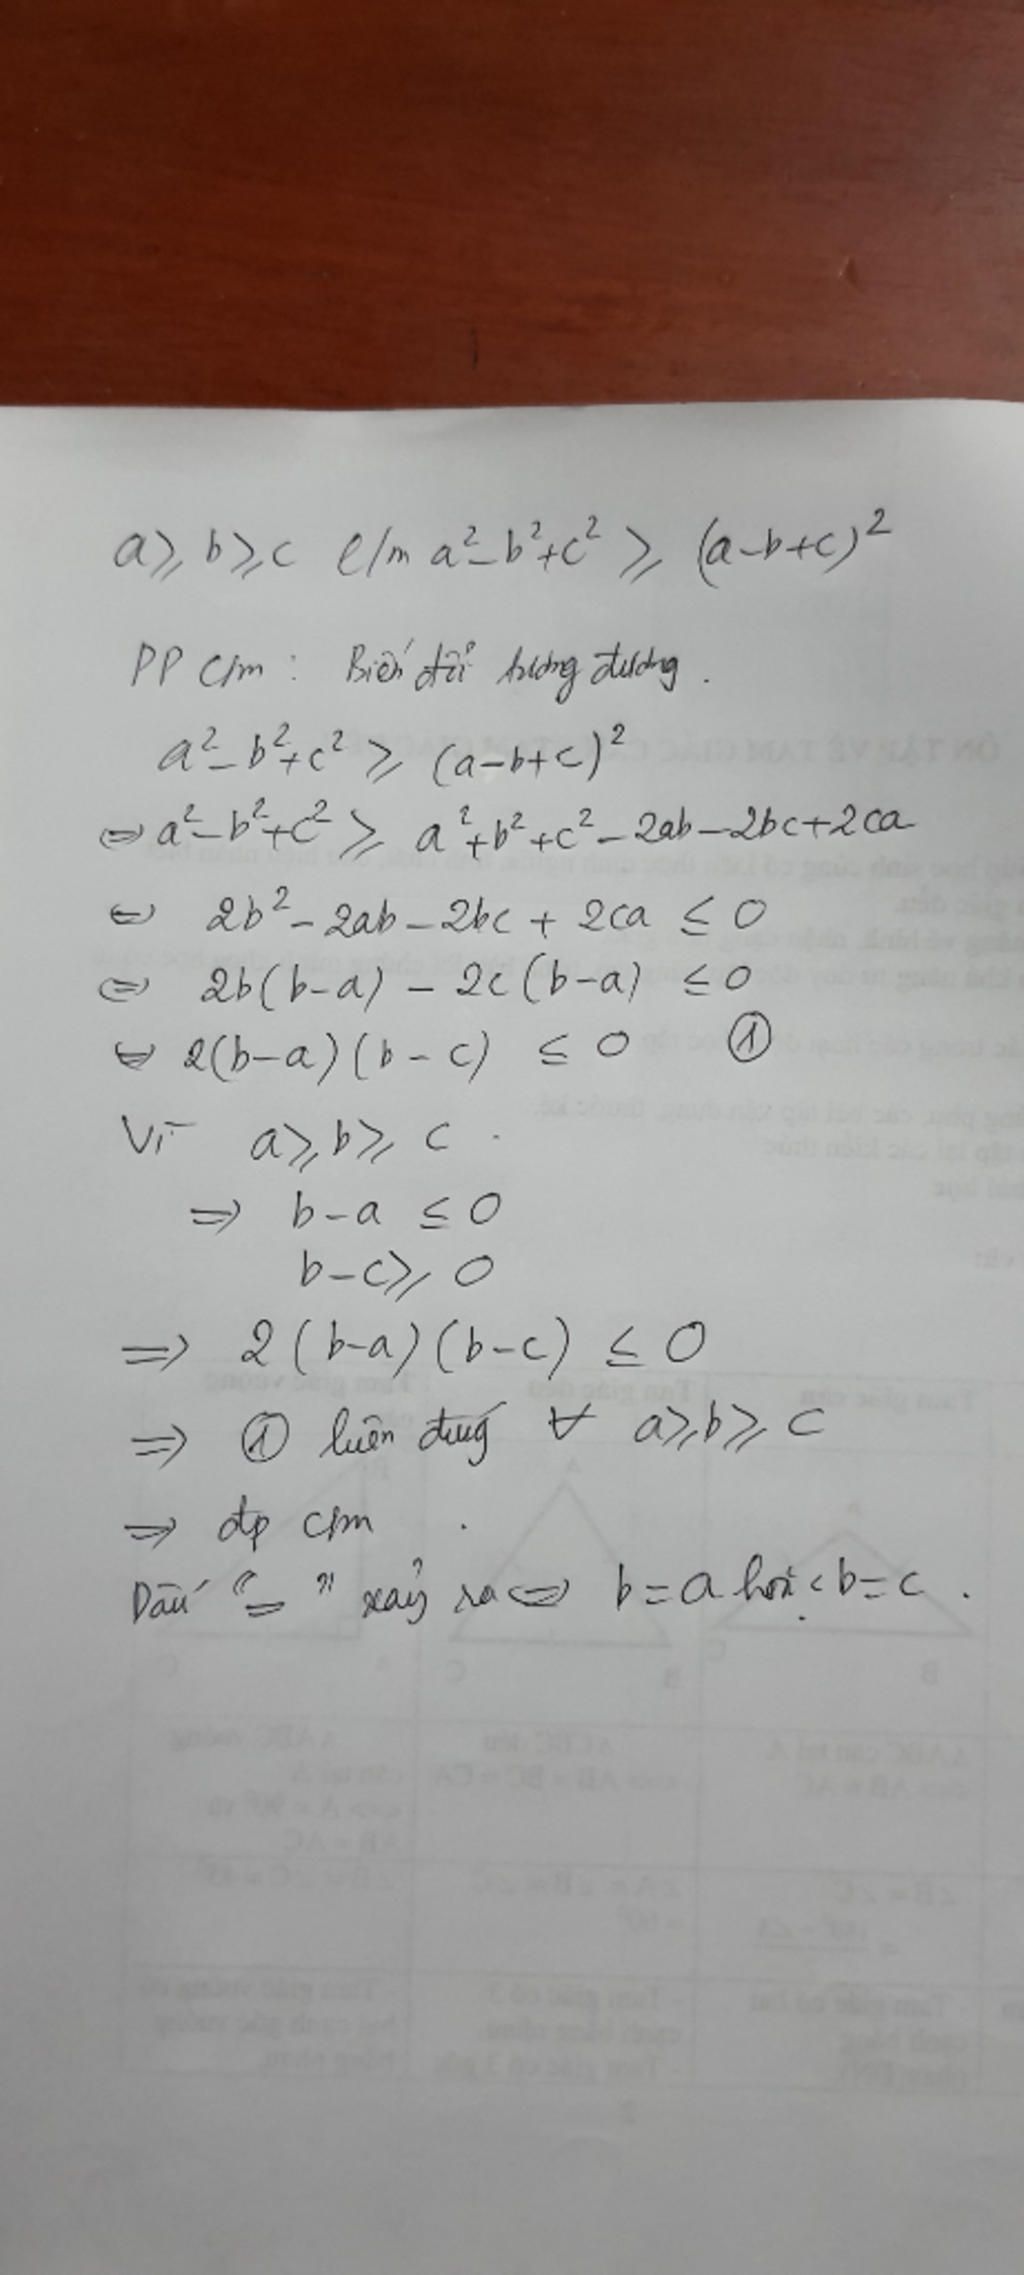 a ⩾ b ⩾ c c/m a²-b²+c² ⩾ (a-b+c)²
PP c/m : Biến đổi tương đương .
a²-b²+c² ⩾ (a-b+c)²
⇔ a²-b²+c² ⩾ a²+b²+c²-2ab-2bc+2ca
⇔ 2b²-2ab-2bc+2ca ≤ 0
⇔ 2b(b-a) - 2c(b-a) ≤ 0
⇔ 2(b-a)(b-c) ≤ 0 ①
Vì a ⩾ b ⩾ c .
⇒ b-a ≤ 0
b-c ⩾ 0
⇒ 2(b-a)(b-c) ≤ 0
⇒ ① luôn đúng ∀ a ⩾ b ⩾ c
⇒ đp c/m .
Dấu "=" xảy ra ⇔ b=a hoặc b=c .